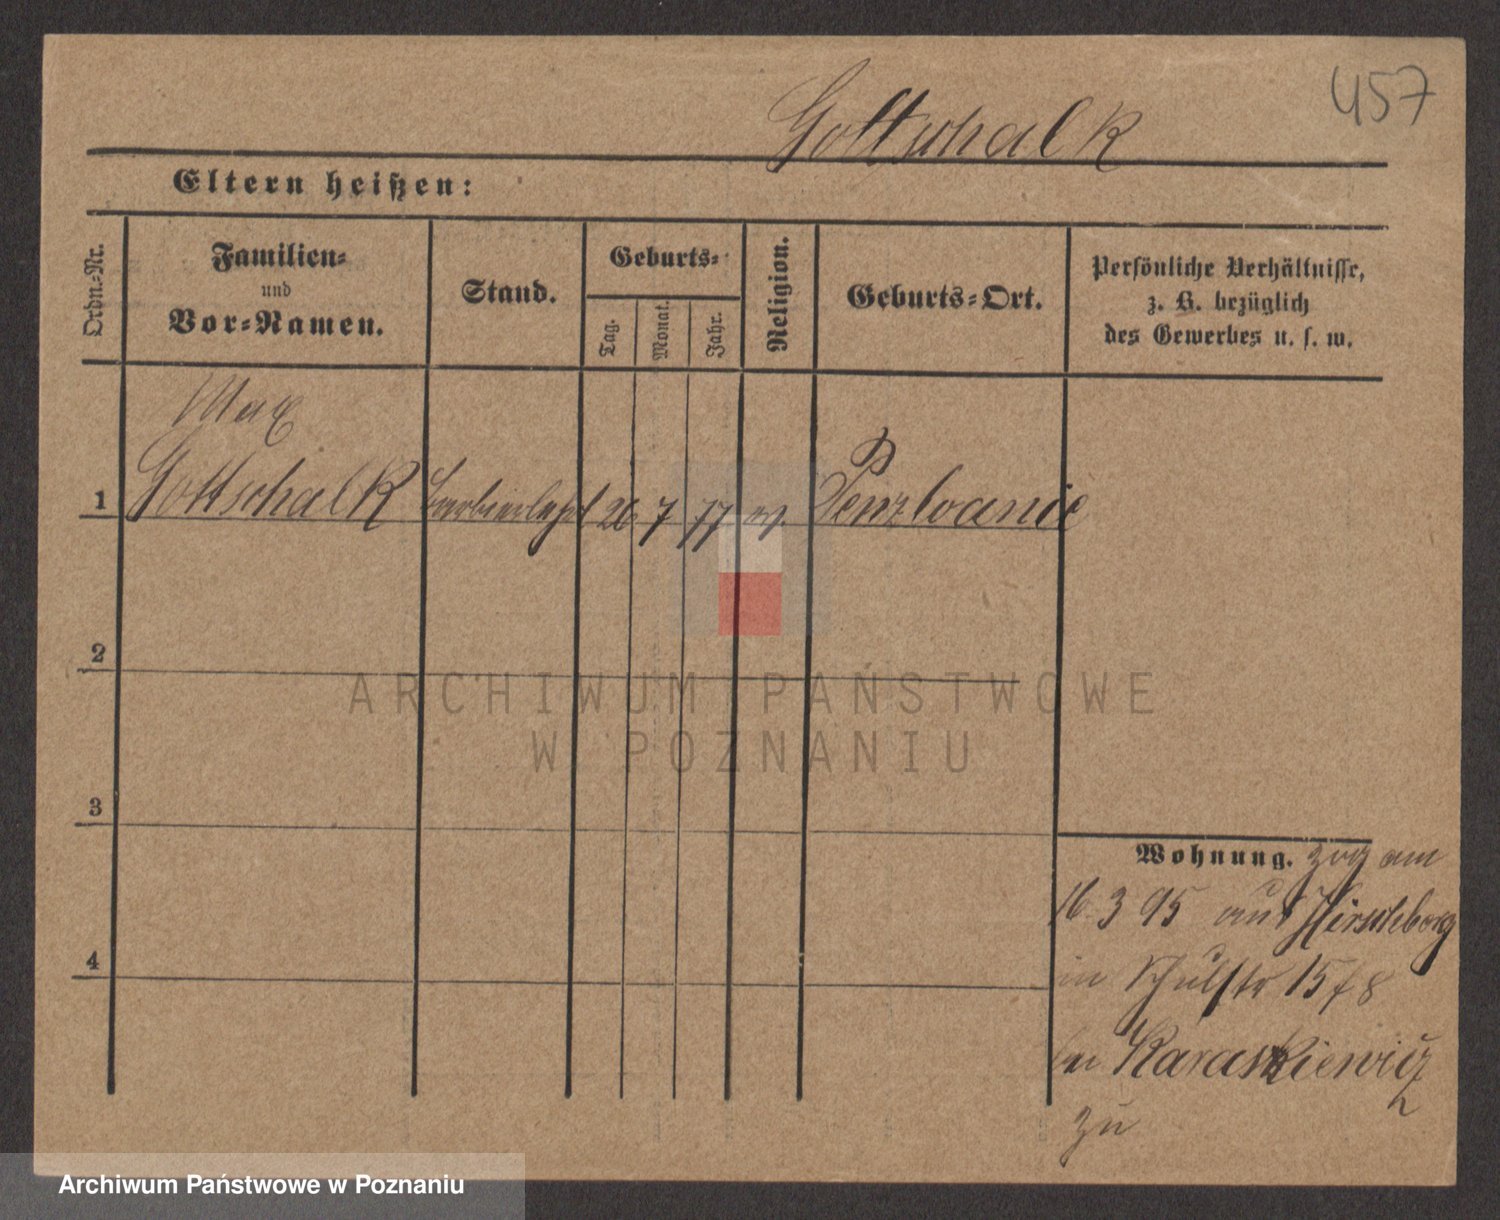 457
Gottschalk
Eltern heißen:
Ordn.-Nr.
Familien-
und
Vor-Namen.
Stand.
Geburts-
Tag.
Monat.
Jahr.
Religion.
Geburts-Ort.
Persönliche Verhältnisse,
z. B. bezüglich
des Gewerbes u. s. w.
Max
1 Gottschalk 26 7 77
2
3
4
ARCHIWUM PAŃSTWOWE
W POZNANIU
Wohnung. zog am
16.3 95 aus Hirschberg
in Schulstr 15
bei Karaskiewicz
zu
Archiwum Państwowe w Poznaniu